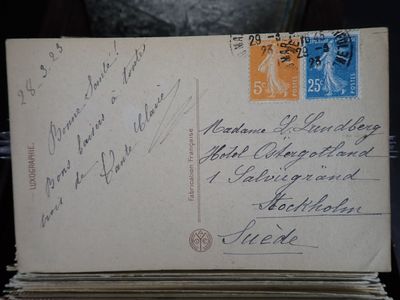 28-3-23
Bonne Santé!
Bons baisers à toutes
trois de Tante Clavie
LUXOGRAPHIE.
Fabrication Française
29-3
23
5c
POSTES
29-3
23
25c
POSTES
Madame L. Lundberg
Hôtel Ostergotland
1 Salviigränd
Stockholm
Suède